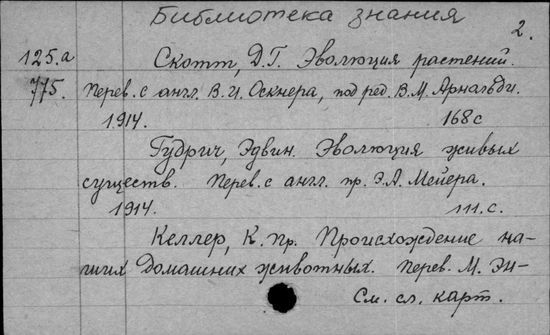 Библиотека знания
2.
125.а Скотт, Д.Г. Эволюция растений.
775. Перев. с англ. В.И. Оскнера, под ред. В.М. Арнольди.
1914. 168 с
Гудрич, Эдвин. Эволюция живых
существ. Перев. с англ. пр. Э.А. Мейера.
1914. 111. с.
Келлер, К. пр. Происхождение на-
ших домашних животных. Перев. М. Эн-
См. сл. карт.